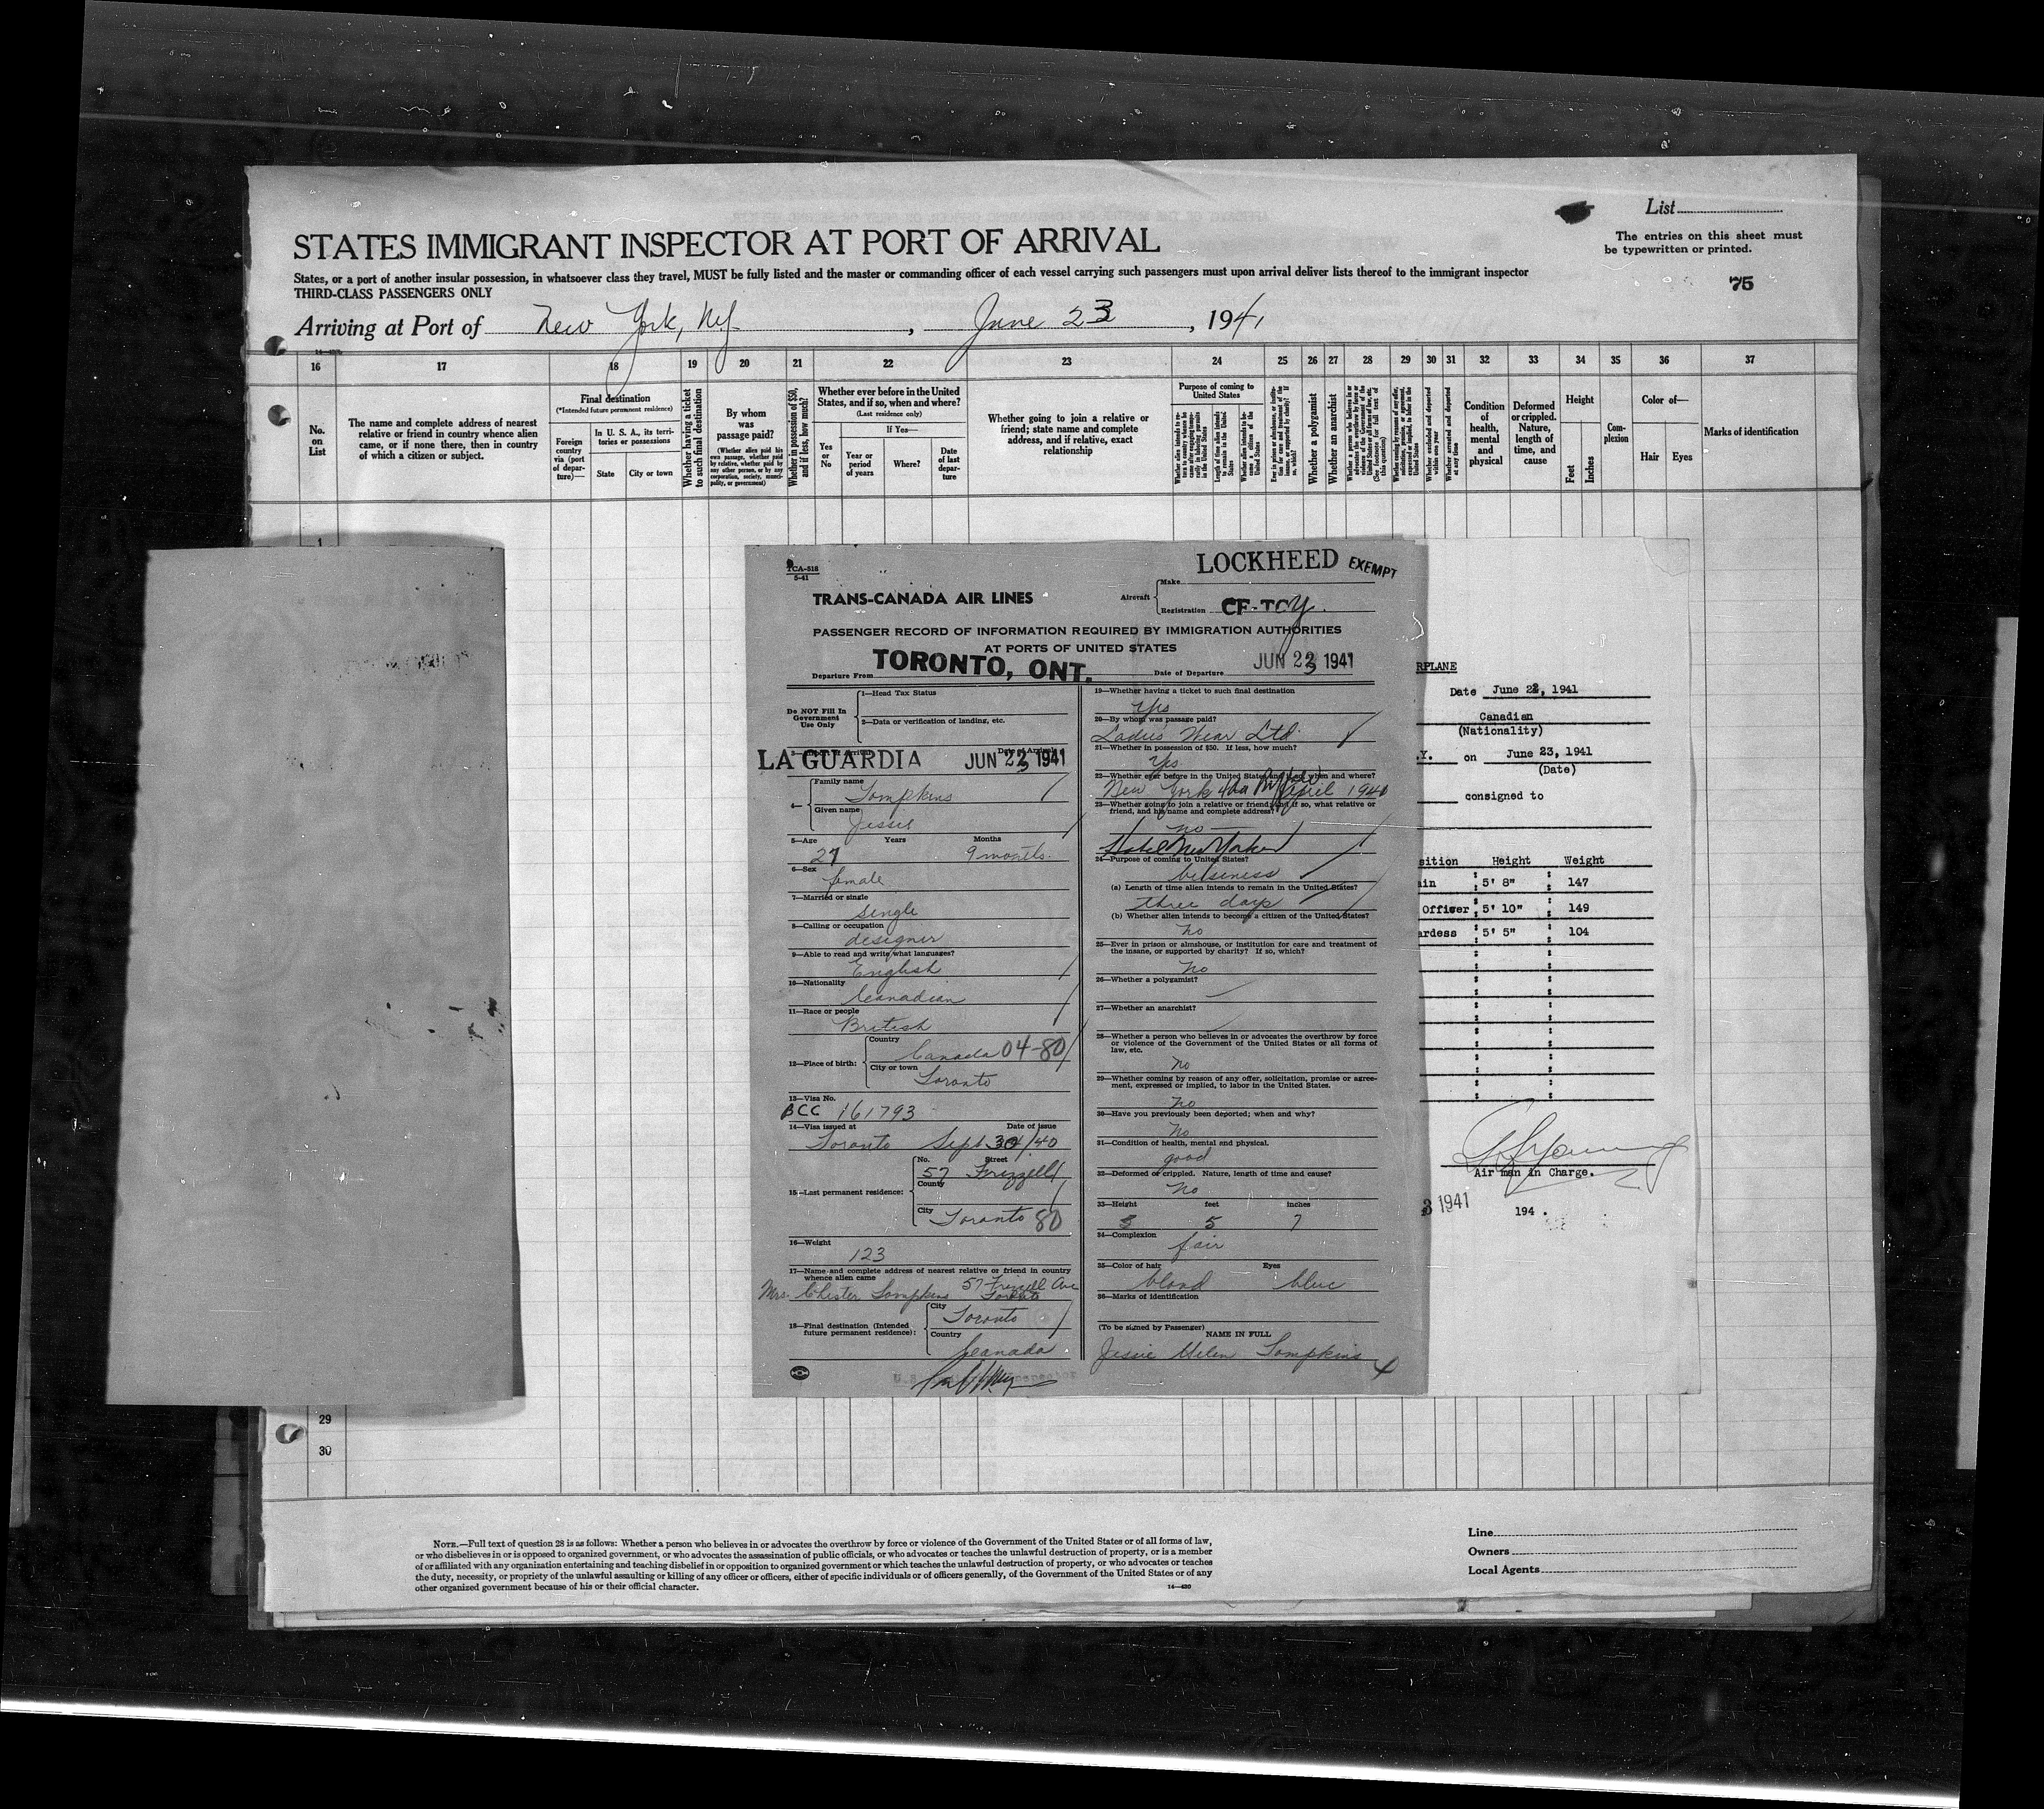 List
The entries on this sheet must
be typewritten or printed.
75
STATES IMMIGRANT INSPECTOR AT PORT OF ARRIVAL
States, or a port of another insular possession, in whatsoever class they travel, MUST be fully listed and the master or commanding officer of each vessel carrying such passengers must upon arrival deliver lists thereof to the immigrant inspector
THIRD-CLASS PASSENGERS ONLY
Arriving at Port of New York, NY , June 23 , 1941
16 17 18 19 20 21 22 23 24 25 26 27 28 29 30 31 32 33 34 35 36 37
No. on List
The name and complete address of nearest
relative or friend in country whence alien
came, or if none there, then in country
of which a citizen or subject.
Final destination
(*Intended future permanent residence)
Foreign country via (port of departure)—
In U. S. A., its territories or possessions
State
City or town
Whether having a ticket to such final destination
By whom was passage paid?
(Whether alien paid his own passage, whether paid by relative, whether paid by any other person, or by any corporation, society, municipality, or government)
Whether in possession of $50, and if less, how much?
Whether ever before in the United
States, and if so, when and where?
(Last residence only)
Yes or No
If Yes—
Year or period of years
Where?
Date of last departure
Whether going to join a relative or
friend; state name and complete
address, and if relative, exact
relationship
Purpose of coming to
United States
Whether a polygamist
Whether an anarchist
Condition of health, mental and physical
Deformed or crippled. Nature, length of time, and cause
Height
Feet
Inches
Complexion
Color of—
Hair
Eyes
Marks of identification
1
TCA-518
5-41
LOCKHEED
EXEMPT
TRANS-CANADA AIR LINES
Aircraft
Make
Registration CF-TCY
PASSENGER RECORD OF INFORMATION REQUIRED BY IMMIGRATION AUTHORITIES
AT PORTS OF UNITED STATES
Departure From TORONTO, ONT.
Date of Departure JUN 23 1941
Do NOT Fill In
Government
Use Only
1—Head Tax Status
2—Data or verification of landing, etc.
LA GUARDIA
Date of Arrival
JUN 23 1941
4—
Family name
Tompkins
Given name
Jessie
5—Age Years Months
27 9 months.
6—Sex
female
7—Married or single
single
8—Calling or occupation
designer
9—Able to read and write what languages?
English
10—Nationality
Canadian
11—Race or people
British
12—Place of birth:
Country
Canada 04-80
City or town
Toronto
13—Visa No.
BCC 161793
14—Visa issued at Date of issue
Toronto Sept 30/40
15—Last permanent residence:
No. Street
57 Frizzell
County
City
Toronto 80
16—Weight
123
17—Name and complete address of nearest relative or friend in country
whence alien came
Mrs. Chester Tompkins 57 Frizzell Ave
Toronto
18—Final destination (Intended
future permanent residence):
City
Toronto
Country
Canada
19—Whether having a ticket to such final destination
Yes
20—By whom was passage paid?
Ladies Wear Ltd.
21—Whether in possession of $50. If less, how much?
Yes
22—Whether ever before in the United States and if so, when and where?
New York April 1940
23—Whether going to join a relative or friend, and if so, what relative or
friend, and his name and complete address?
no
Hotel New Yorker
24—Purpose of coming to United States?
business
(a) Length of time alien intends to remain in the United States?
three days
(b) Whether alien intends to become a citizen of the United States?
no
25—Ever in prison or almshouse, or institution for care and treatment of
the insane, or supported by charity? If so, which?
No
26—Whether a polygamist?
27—Whether an anarchist?
28—Whether a person who believes in or advocates the overthrow by force
or violence of the Government of the United States or all forms of
law, etc.
No
29—Whether coming by reason of any offer, solicitation, promise or agree-
ment, expressed or implied, to labor in the United States.
No
30—Have you previously been deported; when and why?
No
31—Condition of health, mental and physical.
good
32—Deformed or crippled. Nature, length of time and cause?
No
33—Height feet inches
5 7
34—Complexion
fair
35—Color of hair Eyes
blond blue
36—Marks of identification
(To be signed by Passenger)
NAME IN FULL
Jessie Helen Tompkins
4
RPLANE
Date June 23, 1941
Canadian
(Nationality)
.Y. on June 23, 1941
(Date)
consigned to
sition Height Weight
ain 5' 8" 147
Officer 5' 10" 149
ardess 5' 5" 104
Air man in Charge.
3 1941
194 .
29
30
NOTE.—Full text of question 28 is as follows: Whether a person who believes in or advocates the overthrow by force or violence of the Government of the United States or of all forms of law,
or who disbelieves in or is opposed to organized government, or who advocates the assassination of public officials, or who advocates or teaches the unlawful destruction of property, or is a member
of or affiliated with any organization entertaining and teaching disbelief in or opposition to organized government or which teaches the unlawful destruction of property, or who advocates or teaches
the duty, necessity, or propriety of the unlawful assaulting or killing of any officer or officers, either of specific individuals or of officers generally, of the Government of the United States or of any
other organized government because of his or their official character.
14—430
Line
Owners
Local Agents